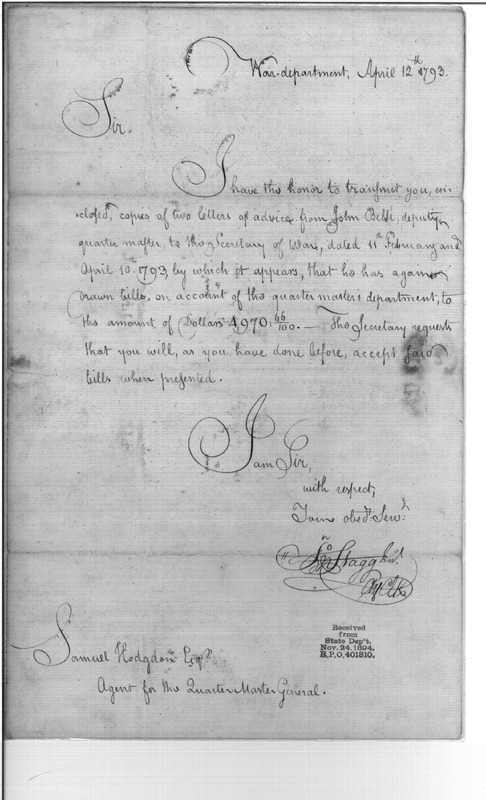 War-department, April 12th 1793.
Sir.
I have the honor to transmit you, en-
closed, copies of two letters of advice from John Belli, deputy
quarter master, to the Secretary of War, dated 11th February and
April 10th 1793, by which it appears, that he has again
drawn bills, on account of the quarter master's department, to
the amount of Dollars 4970: 66/100. — The Secretary requests
that you will, as you have done before, accept said
bills when presented.
I am Sir,
with respect,
Your obedt. Servt.
Jno Stagg Junr.
Received
from
State Dep't.
Nov. 24. 1894.
R.P.O. 401310.
Samuel Hodgdon Esqr.
Agent for the Quarter Master General.